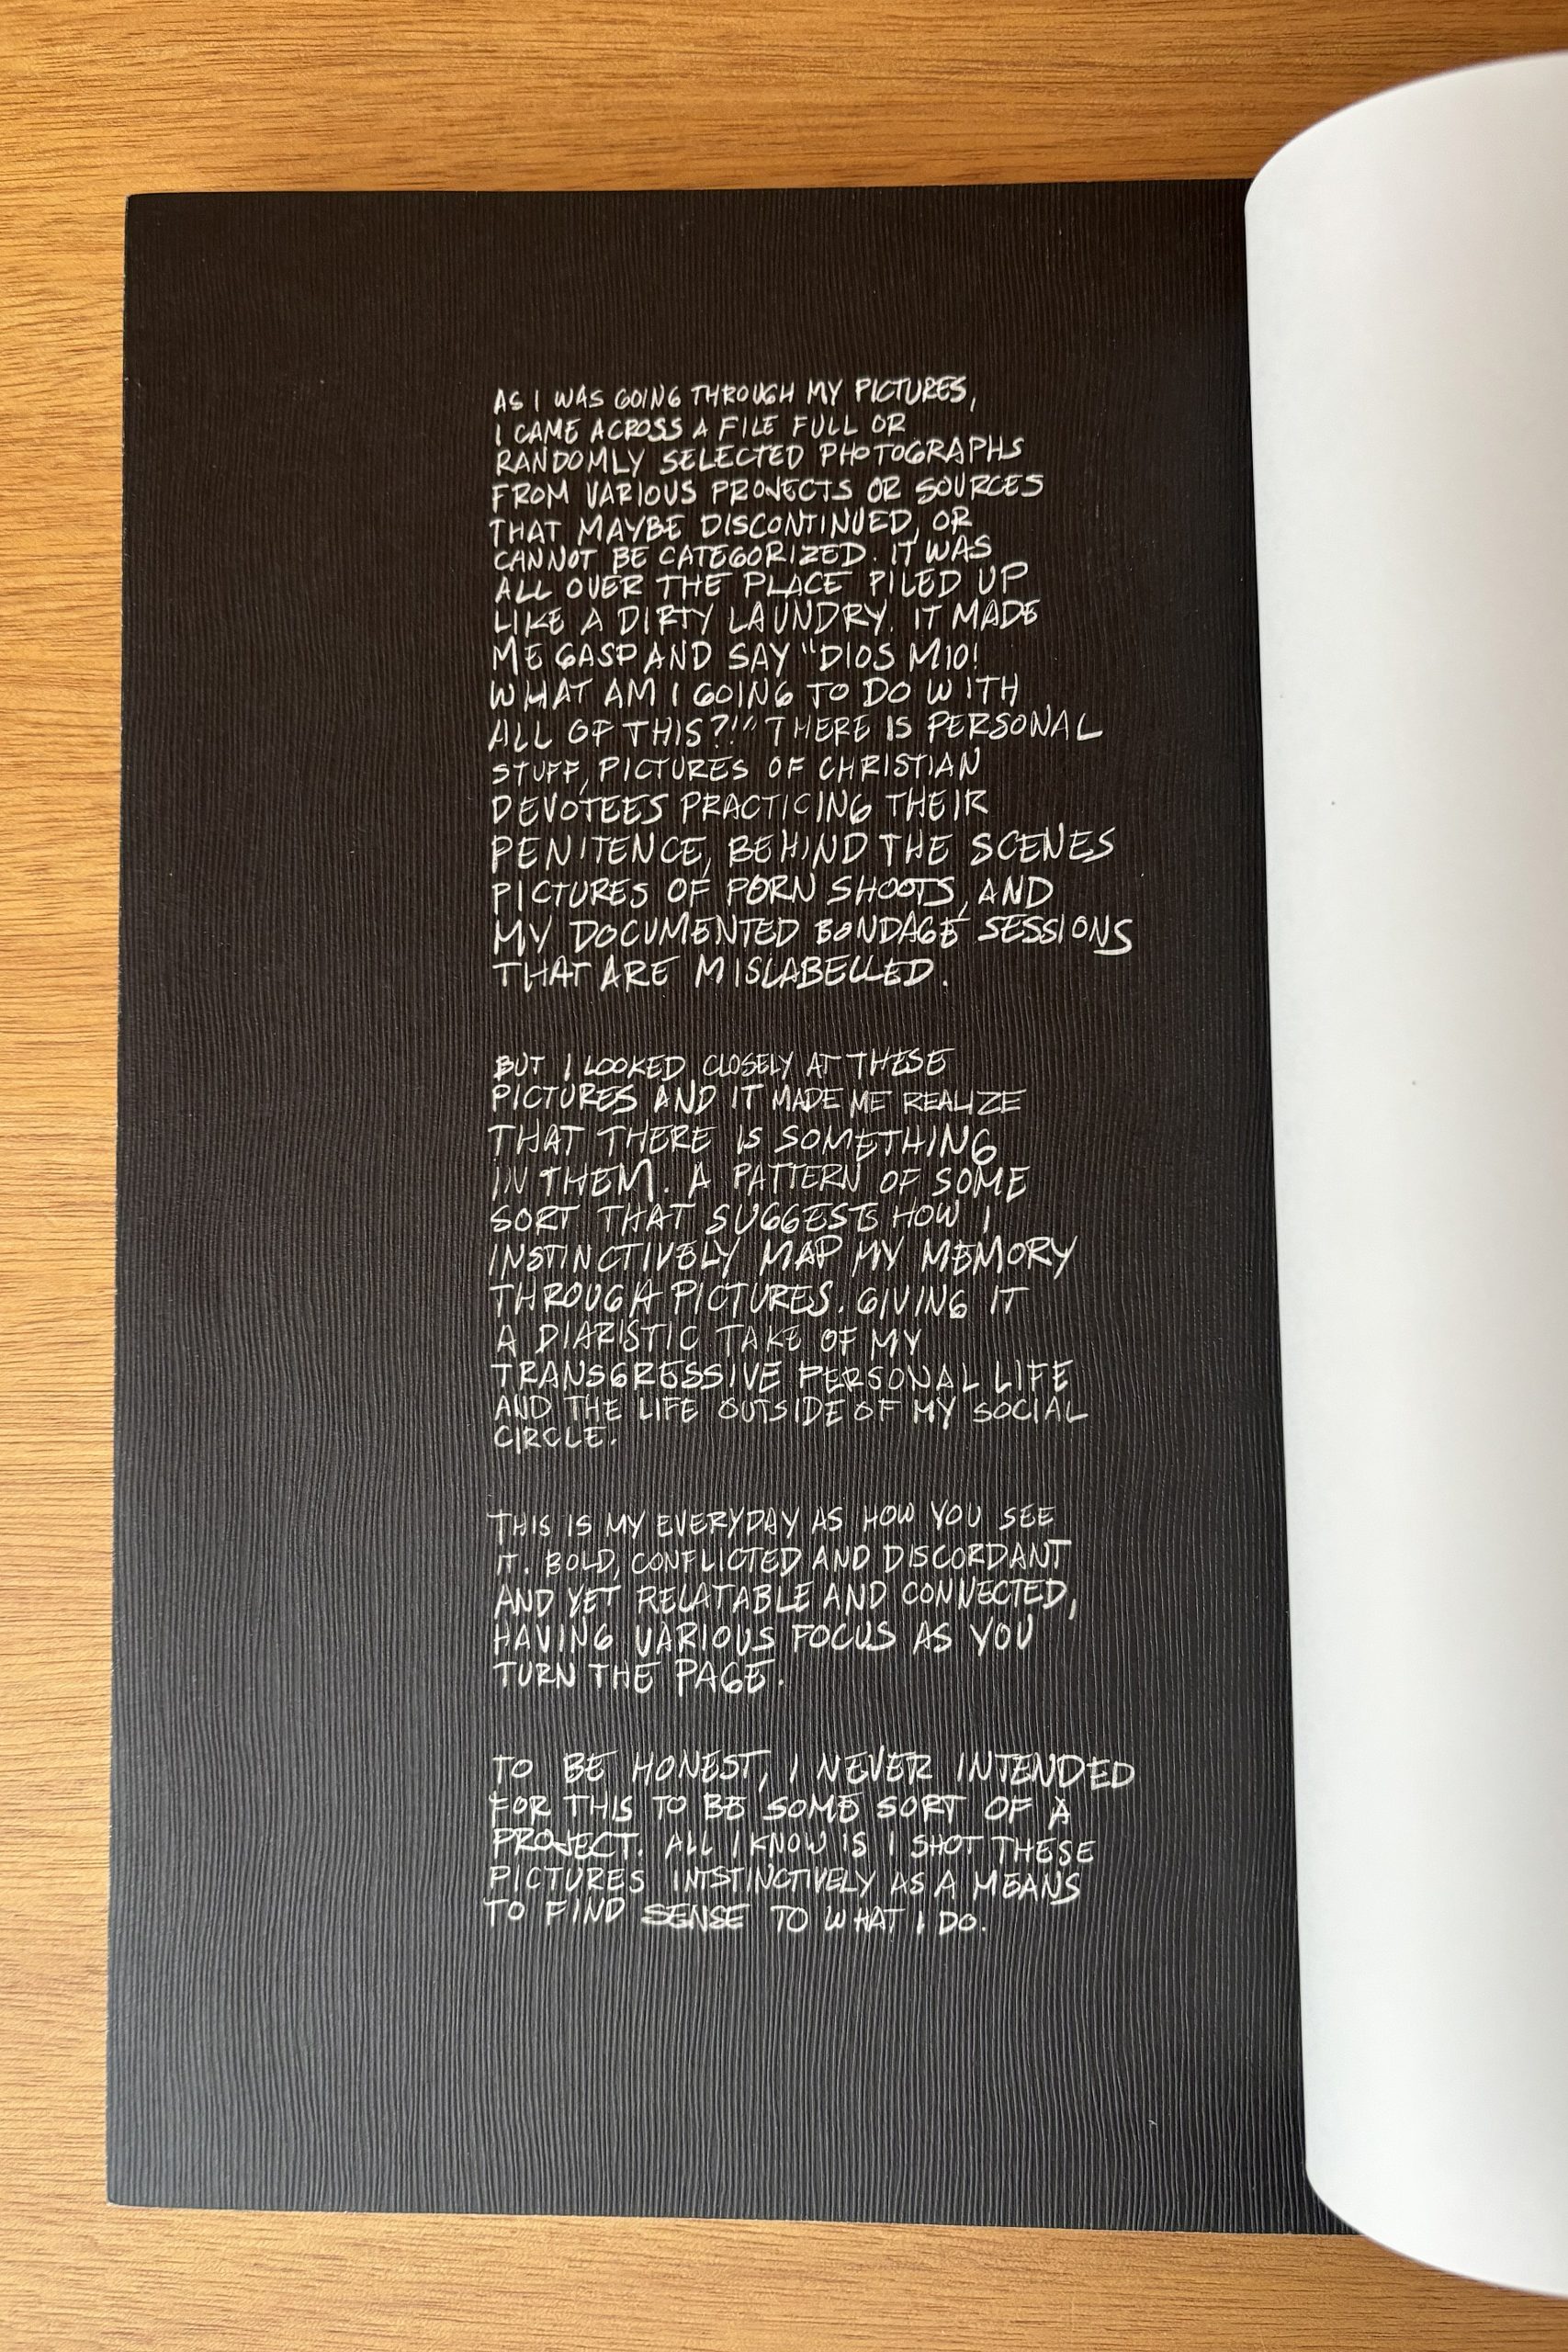 AS I WAS GOING THROUGH MY PICTURES,
I CAME ACROSS A FILE FULL OR
RANDOMLY SELECTED PHOTOGRAPHS
FROM VARIOUS PROJECTS OR SOURCES
THAT MAYBE DISCONTINUED, OR
CANNOT BE CATEGORIZED. IT WAS
ALL OVER THE PLACE PILED UP
LIKE A DIRTY LAUNDRY. IT MADE
ME GASP AND SAY "DIOS MIO!
WHAT AM I GOING TO DO WITH
ALL OF THIS?!" THERE IS PERSONAL
STUFF, PICTURES OF CHRISTIAN
DEVOTEES PRACTICING THEIR
PENITENCE, BEHIND THE SCENES
PICTURES OF PORN SHOOTS, AND
MY DOCUMENTED BONDAGE SESSIONS
THAT ARE MISLABELLED.
BUT I LOOKED CLOSELY AT THESE
PICTURES AND IT MADE ME REALIZE
THAT THERE IS SOMETHING
IN THEM. A PATTERN OF SOME
SORT THAT SUGGESTS HOW I
INSTINCTIVELY MAP MY MEMORY
THROUGH PICTURES. GIVING IT
A DIARISTIC TAKE OF MY
TRANSGRESSIVE PERSONAL LIFE
AND THE LIFE OUTSIDE OF MY SOCIAL
CIRCLE.
THIS IS MY EVERYDAY AS HOW YOU SEE
IT. BOLD, CONFLICTED AND DISCORDANT
AND YET RELATABLE AND CONNECTED,
HAVING VARIOUS FOCUS AS YOU
TURN THE PAGE.
TO BE HONEST, I NEVER INTENDED
FOR THIS TO BE SOME SORT OF A
PROJECT. ALL I KNOW IS I SHOT THESE
PICTURES INTSTINCTIVELY AS A MEANS
TO FIND SENSE TO WHAT I DO.